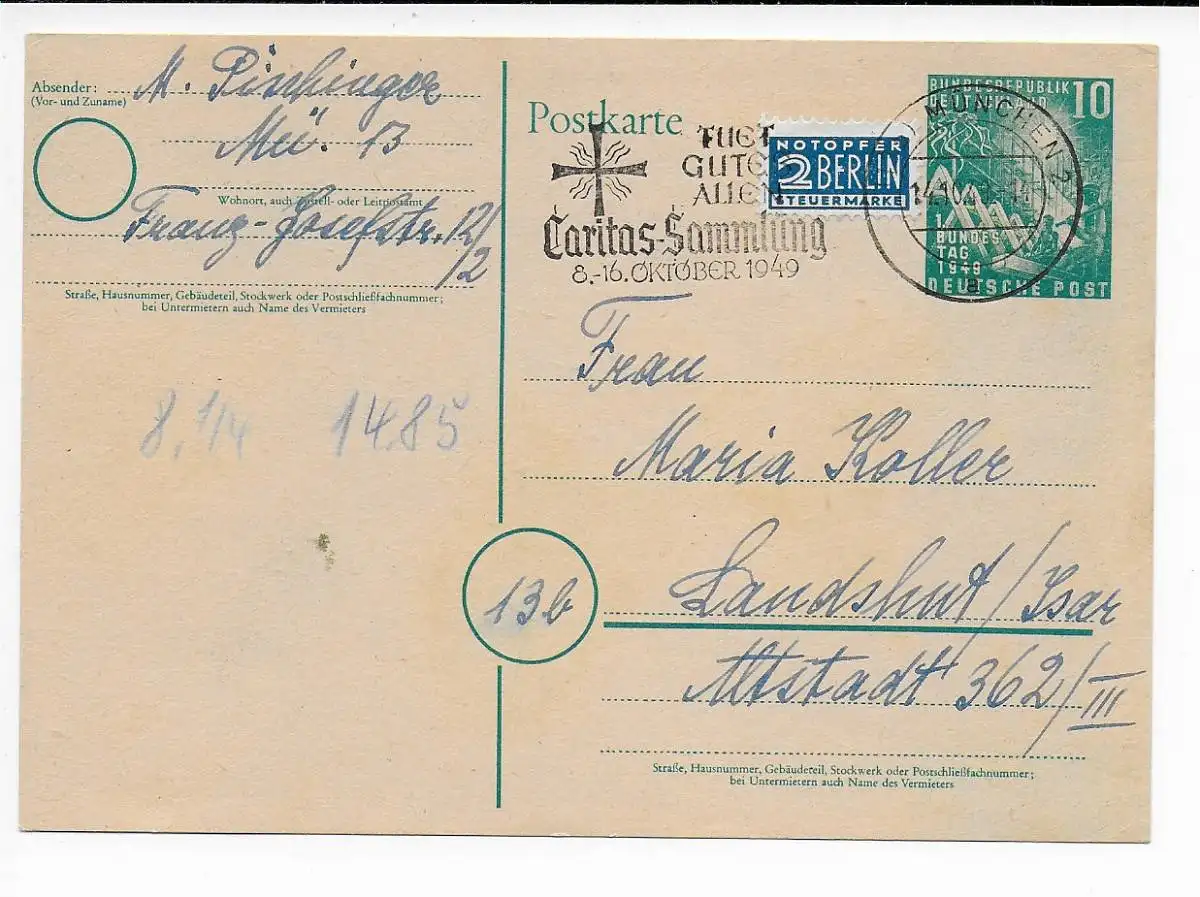 Absender: M. Pischinger
(Vor- und Zuname)
Mü. 13
Wohnort, auch Zustell- oder Leitpostamt
Franz-Josefstr. 12/2
Straße, Hausnummer, Gebäudeteil, Stockwerk oder Postschließfachnummer;
bei Untermietern auch Name des Vermieters
8. 1/4 1485
Postkarte
TUET
GUTES
ALLEN
Caritas-Sammlung
8.-16. OKTOBER 1949
NOTOPFER
2 BERLIN
STEUERMARKE
MÜNCHEN 2
a
BUNDESREPUBLIK
DEUTSCHLAND
10
1.
BUNDES
TAG
1949
DEUTSCHE POST
Frau
Maria Koller
13b
Landshut/Isar
Altstadt 362/III
Straße, Hausnummer, Gebäudeteil, Stockwerk oder Postschließfachnummer;
bei Untermietern auch Name des Vermieters